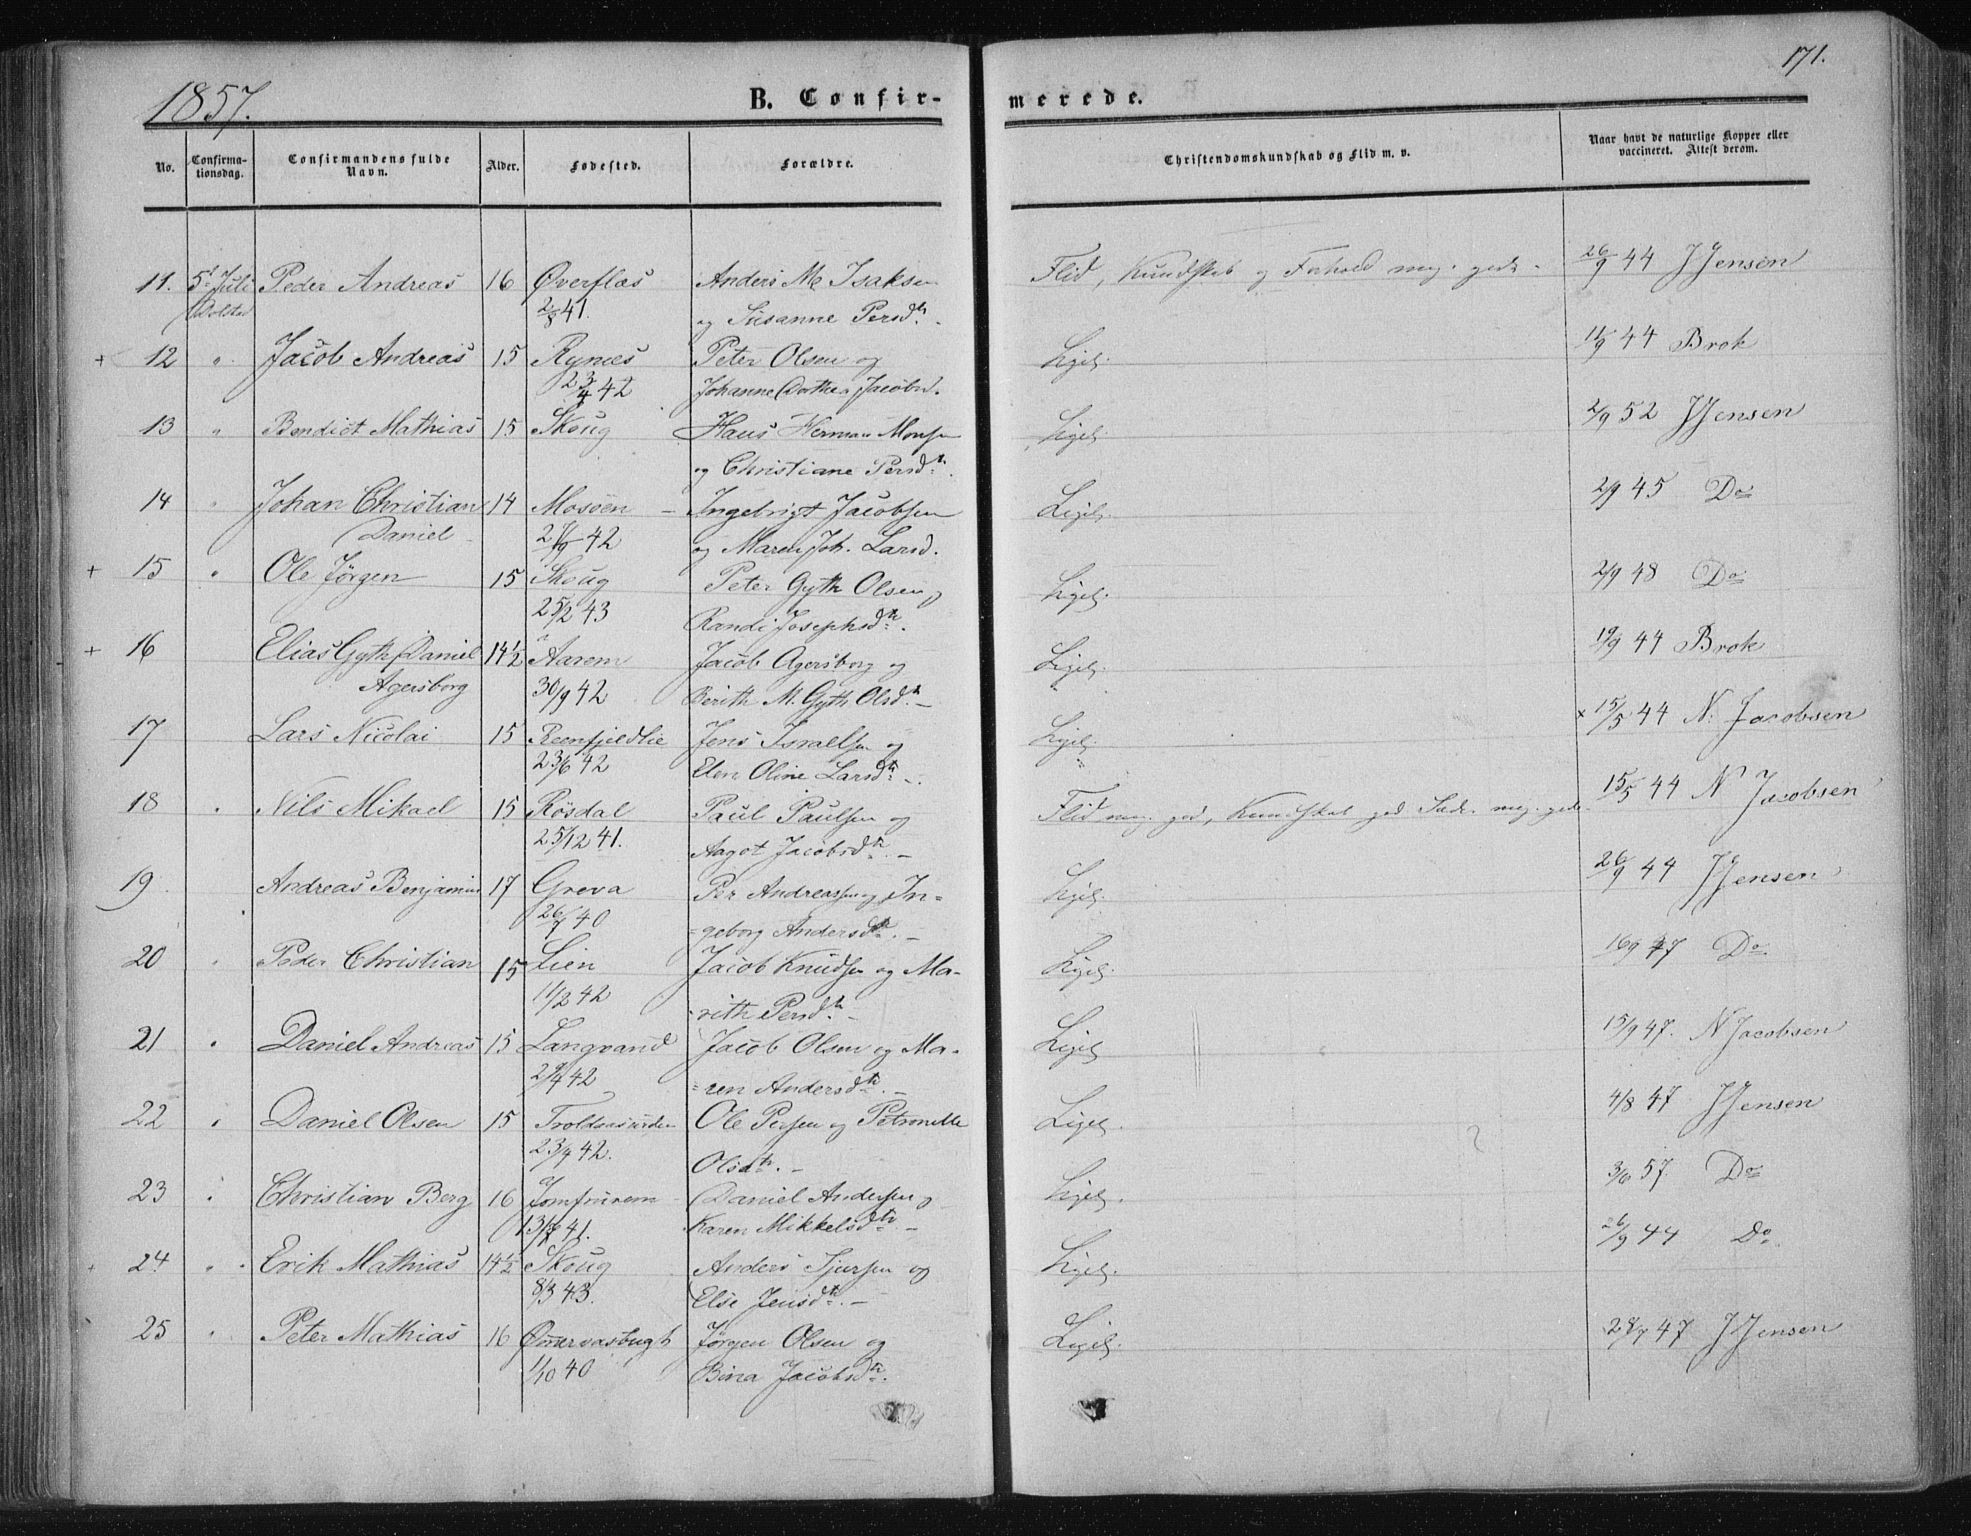 1857.
B. Confir-
merede.
171.
No.
Confirma-
tionsdag.
Confirmandens fulde
Navn.
Alder.
Fødested.
Forældre.
Christendomskundskab og Flid m. v.
Naar havt de naturlige Kopper eller
vaccineret. Attest derom.
11. 5t Juli Peder Andreas 16 Øverflæs Anders M. Isaksen Flid, Kundskab og Forhold meg. gode. 26/9 44 J Jensen
Dolstad 2/8 41. og Susanne Persdtr.
+ 12 " Jacob Andreas 15 Rynes Peter Olsen og Ligel. 11/9 44 Brok
23/4 42 Johanne Dorthea Jacobsd.
13 " Bendict Mathias 15 Skoug Hans Herman Monsen Ligel. 2/9 52 J Jensen
og Christiane Persdtr.
14 " Johan Christian 14 Mosøen Ingebrigt Jacobsen Ligel. 2/9 45 Do
Daniel 42 og Maren Joh. Larsd.
+ 15 " Ole Jørgen 15 Skoug Peter Gyth Olsen, Ligel. 2/9 48 Do
25/2 43 Randi Josephsdtr.
+ 16 Elias Gyth Daniel 14½ Aarem Jacob Agersborg og Ligel. 19/9 44 Brok
Agersborg 30/9 42 Berith M. Gyth Olsdtr.
17 Lars Nicolai 15 Reenfjeldlie Jens Israelsen og Ligel. × 15/5 44 N. Jacobsen
23/6 42 Elen Oline Larsdtr.
18 " Nils Mikael 15 Røsdal Paul Paulsen og Flid meg. god, Kundskab god Sæder meg. gode. 15/5 44 N Jacobsen
25/12 41. Aagot Jacobsdtr.
19 " Andreas Benjamin 17 Greva Per Andreassen og In- Ligel. 26/9 44 J Jensen
26/7 40 geborg Andersdtr.
20 " Peder Christian 15 Lien Jacob Knudsen og Ma- Ligel. 16/9 47 Do
11/2 42 rith Persdtr.
21 " Daniel Andreas 15 Langvand Jacob Olsen og Ma- Ligel. 15/9 47. N Jacobsen
42 ren Andersdtr.
22 " Daniel Olsen 15 Ole Persen og Petronelle Ligel. 4/8 47 J Jensen
42. Olsdtr.
23 " Christian Berg 16 Jomfrurem Daniel Andersen og Ligel. 3/6 57. Do
41. Karen Mikkelsdtr.
24 " Erik Mathias 14½ Skoug Anders Sjursen og Ligel. 26/9 44 Do
8/3 43. Else Jensdtr.
25 " Peter Mathias 16 Jørgen Olsen og Ligel. 28/7 47 J Jensen
1/10 40 Bina Jacobsdtr.